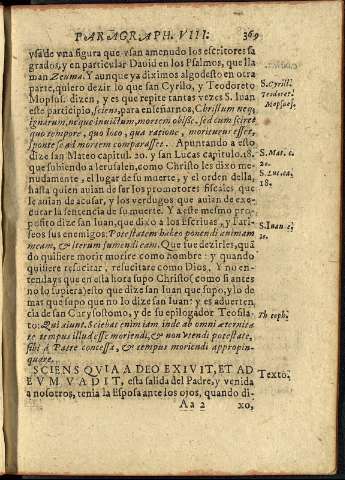 PARAGRAPH. VIII. 369
ysa de vna figura que vsan amenudo los escritores sa
grados, y en particular Dauid en los Psalmos, que lla
man Zeuma. Y aunque ya diximos algo desto en otra
parte, quiero dezir lo que san Cyrilo, y Teodoreto
Mopsus. dizen, y es que repite tantas vezes S. Iuan
este participio, sciens, para enseñarnos, Christum neq;
ignarum, neque inuictum, mortem obijsse, sed cum sciret
quo tempore, quo loco, qua ratione, moriturus esset,
sponte se ad mortem comparasset. Apuntando a esto
dize san Mateo capitul. 20. y san Lucas capitulo. 18.
que subiendo a Ierusalen, como Christo les dixo me
nudamente, el lugar de su muerte, y el orden della,
hasta quien auian de ser los promotores fiscales que
le auian de acusar, y los verdugos que auian de exe-
cutar la sentencia de su muerte. Y a este mesmo pro-
posito dize san Iuan, que dixo a los Escriuas, y Fari-
seos sus enemigos: Potestatem habeo ponendi animam
meam, & iterum sumendi eam. Que fue dezirles, quã
do quisiere morir morire como hombre: y quando
quisiere resucitar, resucitare como Dios, Y no en-
tendays que en esta hora supo Christo (como si antes
no lo supiera) esto que dize san Iuan que supo, y lo de
mas que supo que no lo dize san Iuan: y es aduerten,
cia de san Curysostomo, y de su epilogador Teofila-
to: Qui aiunt. Sciebat enim iam inde ab omni æternita
te tempus illud esse moriendi, & non vtendi potestate,
sibi à Patre concessa, & tempus moriendi appropin-
quare.
SCIENS QVIA A DEO EXIVIT, ET AD
EVM VADIT, esta salida del Padre, y venida
a nosotros, tenia la Esposa ante los ojos, quando di-
Aa 2 xo,
S. Cyrill.
Teodoret.
Mopsues.
S. Mat. c.
20.
S. Luc. ca.
18.
S. Iuan c.
10.
Theoph.
Texto.